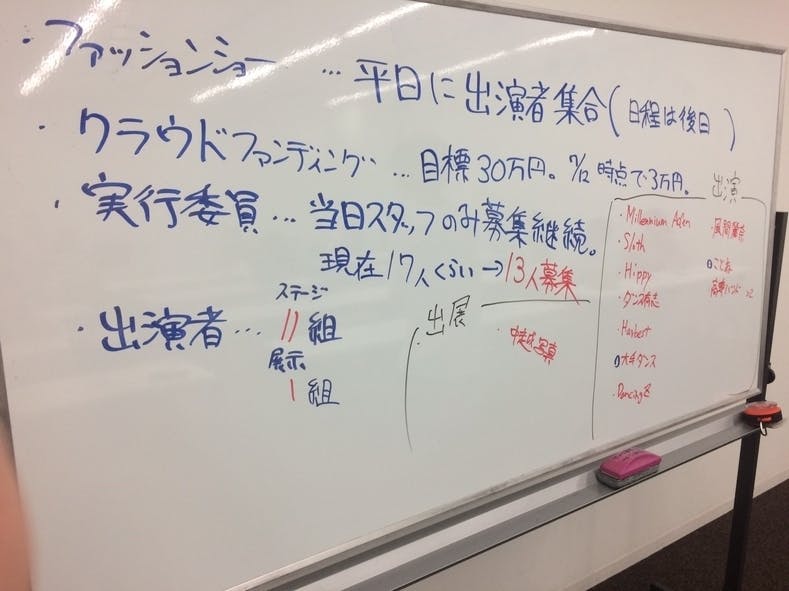 ・ファッションショー … 平日に出演者集合(日程は後日)
・クラウドファンディング … 目標30万円。7/12時点で3万円。
・実行委員 … 当日スタッフのみ募集継続。
現在17人くらい→13人募集
・出演者 … ステージ 11組
展示 1組
出展
・中越写真
出演
・Millennium
・Sloth
・Hippy
・ダンス有志
・Herbert
・大手ダンス
・Dancing
・風間
・こどあ
高専バンド ×2